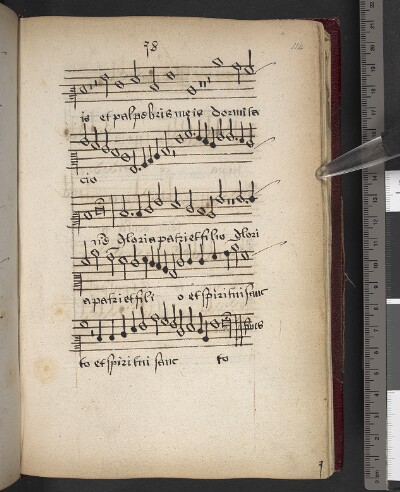 38
114
is et palpebris meis dormita
cio
Gloria patri et filio glori
a patri et fili o et spiritui sanc
to et spiritui sanc to